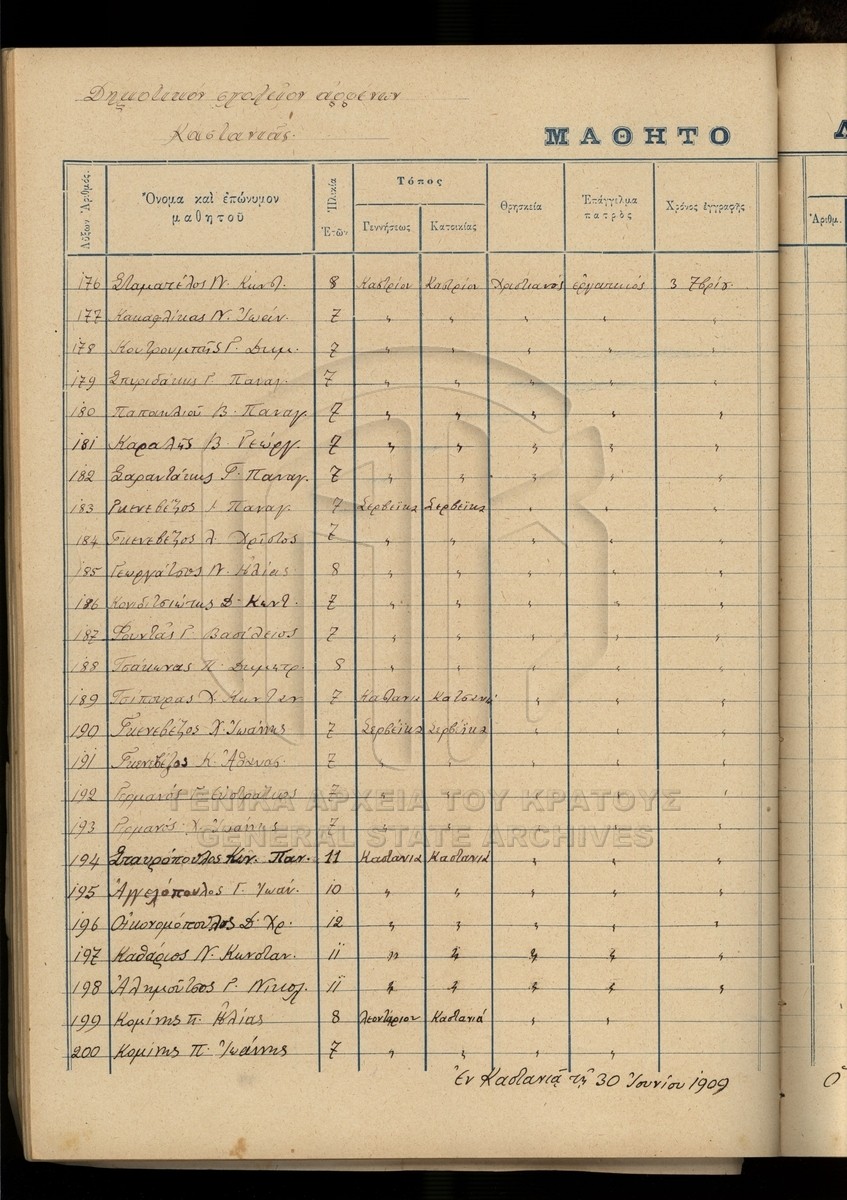 Δημοτικον σχολεῖον ἀρρενων
Καστανιᾶς.
ΜΑΘΗΤΟ
Αὔξων Ἀριθμός. Ὄνομα καὶ ἐπώνυμον μαθητοῦ Ἡλικία Ἐτῶν Τόπος Γεννήσεως Κατοικίας Θρησκεία Ἐπάγγελμα πατρὸς Χρόνος ἐγγραφῆς Ἀριθμ.
176 Σταματέλος Ν. Κωνστ. 8 Καστρίον Καστρίον Χριστιανός ἐργατικός 3 7βρίου
177 Κακαφλίκας Ν. Ἰωάν. 7 〃 〃 〃 〃 〃
178 Κουτρουμπῆς Γ. Δημ. 7 〃 〃 〃 〃 〃
179 Σπυριδάκης Γ. Παναγ. 7 〃 〃 〃 〃 〃
180 Παπαηλιοῦ Β. Παναγ. 7 〃 〃 〃 〃 〃
181 Καραλῆς Β. Γεώργ. 7 〃 〃 〃 〃 〃
182 Σαραντάκης Γ. Παναγ. 7 〃 〃 〃 〃 〃
183 Γκενεβέζος Παναγ. 7 Σερβέϊκα Σερβέϊκα 〃 〃 〃
184 Γκενεβέζος Χρῖστος 7 〃 〃 〃 〃 〃
185 Γεωργάτσος Ν. Ηλίας 8 〃 〃 〃 〃 〃
186 Κονιδιτσιώτης Δ. Κωνστ. 7 〃 〃 〃 〃 〃
187 Φουντᾶς Γ. Βασίλειος 7 〃 〃 〃 〃 〃
188 Τσάκωνας Π. Δημητρ. 8 〃 〃 〃 〃 〃
189 Τσιπουρας Χ. 7 〃 〃 〃
190 Γκενεβέζος Χ. Ἰωάννης 7 Σερβέϊκα Σερβέϊκα 〃 〃 〃
191 Γκενεβέζος Κ. Ἀθανασ. 7 〃 〃 〃 〃 〃
192 Γερμανός Γ. Εὐστράτιος 7 〃 〃 〃 〃 〃
193 Γερμανός Χ. Ἰωάννης 7 〃 〃 〃 〃 〃
194 Σταυρόπουλος Κων. Παν. 11 Καστανιά Καστανιά 〃 〃 〃
195 Ἀγγελόπουλος Γ. Ἰωάν. 10 〃 〃 〃 〃 〃
196 Οἰκονομόπουλος Δ. Χρ. 12 〃 〃 〃 〃 〃
197 Καθάριος Ν. Κωνσταν. 11 〃 〃 〃 〃 〃
198 Ἀλημοῦτσος Γ. Νικολ. 11 〃 〃 〃 〃 〃
199 Κομίνης Π. Ηλίας 8 Λεοντάριον Καστανιά 〃 〃
200 Κομίνης Π. Ἰωάννης 7 〃 〃 〃 〃
Ἐν Καστανιᾷ τῇ 30 Ἰουνίου 1909
ΓΕΝΙΚΑ ΑΡΧΕΙΑ ΤΟΥ ΚΡΑΤΟΥΣ
GENERAL STATE ARCHIVES